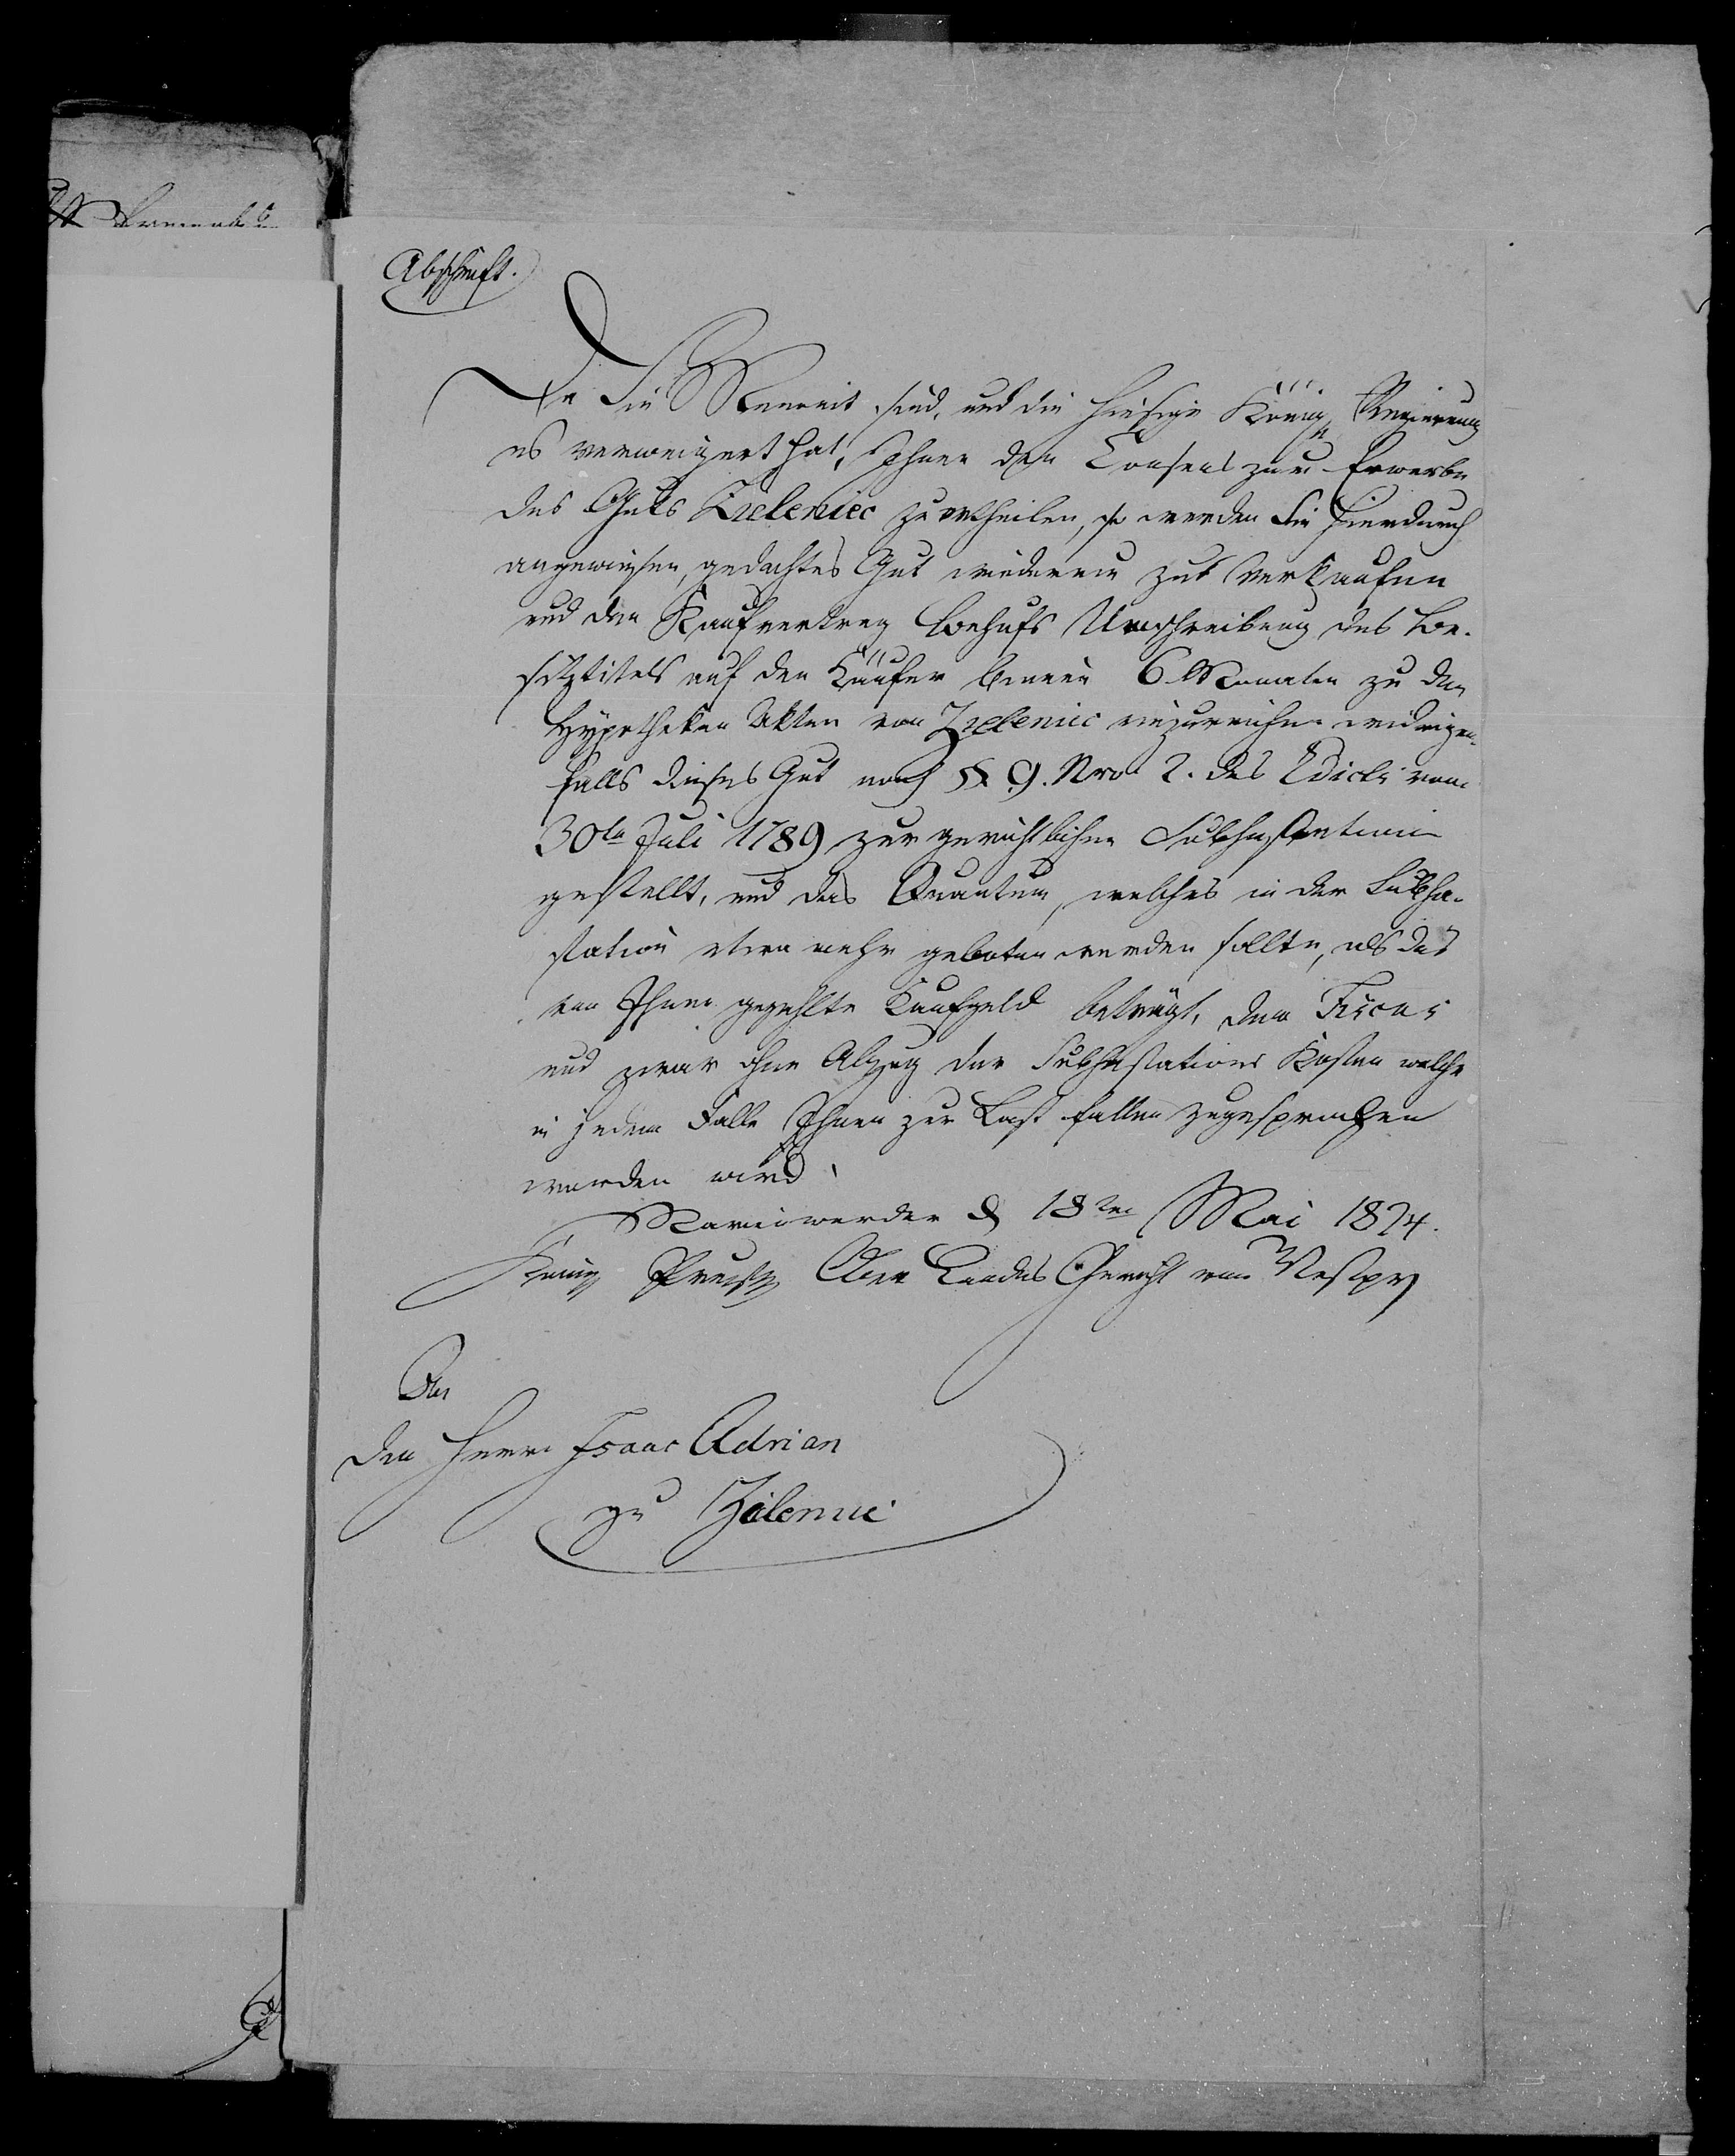 Abschrift.
Da Sie Mennonit sind, und die hiesige Königl Regierung
es verweigert hat, Ihnen den Consens zum Erwerbe
des Guts Zieleniec zu ertheilen, so werden Sie hierdurch
angewiesen, gedachtes Gut wiederum zu verkaufen
und den Kaufvertrag behufs Umschreibung des Be-
sitztitels auf den Käufer binnen 6 Monaten zu den
Hypotheken Akten von Zieleniec einzureichen widrigen-
falls dieses Gut nach § 9. Nro 2. des Edicts vom
30ten Juli 1789 zur gerichtlichen Subhastation
gestellt, und das Quantum, welches in der Subha-
station etwa mehr geboten werden sollte, als das
von Ihnen gezahlte Kaufgeld beträgt, dem Fiscus
und zwar ohne Abzug der Subhastations Kosten welche
in jedem Falle Ihnen zur Last fallen zugesprochen
werden wird
Marienwerder d 18ten Mai 1824.
Königl Preuß Ober Landes Gericht von Westpr
An
den Herrn Isaac Adrian
zu Zieleniec